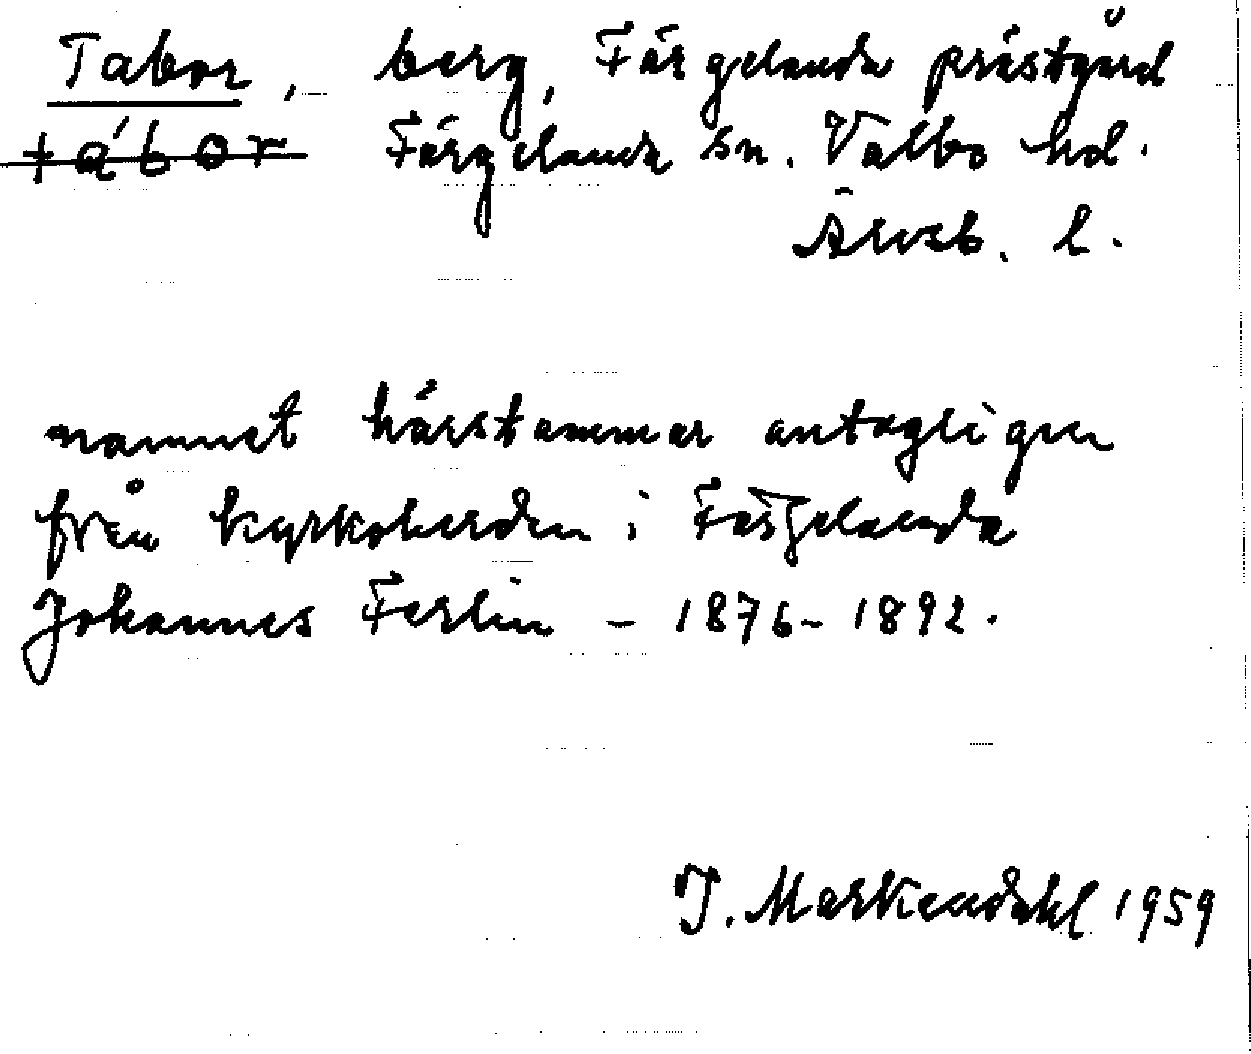 Tabor, berg, Färgelanda prästgård
tábor Färgelanda sn. Valbo hd.
Älvsb. l.
namnet härstammar antagligen
från kyrkoherden i Färgelanda
Johannes Ferlin - 1876-1892.
J. Markendahl 1959